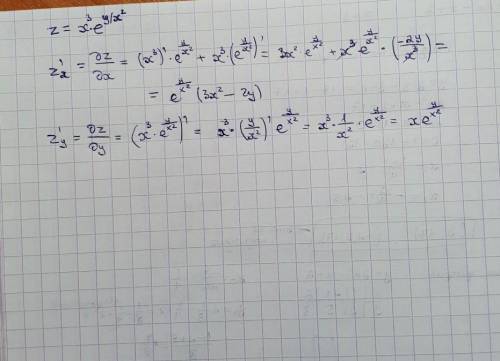 z = x³·e^(y/x²)
z'ₓ = ∂z/∂x = (x³)'·e^(y/x²) + x³·(e^(y/x²))' = 3x² e^(y/x²) + x³·e^(y/x²)·(-2y/x³) =
= e^(y/x²) (3x² - 2y)
z'ᵧ = ∂z/∂y = (x³·e^(y/x²))' = x³·(y/x²)' e^(y/x²) = x³·1/x²·e^(y/x²) = x e^(y/x²)